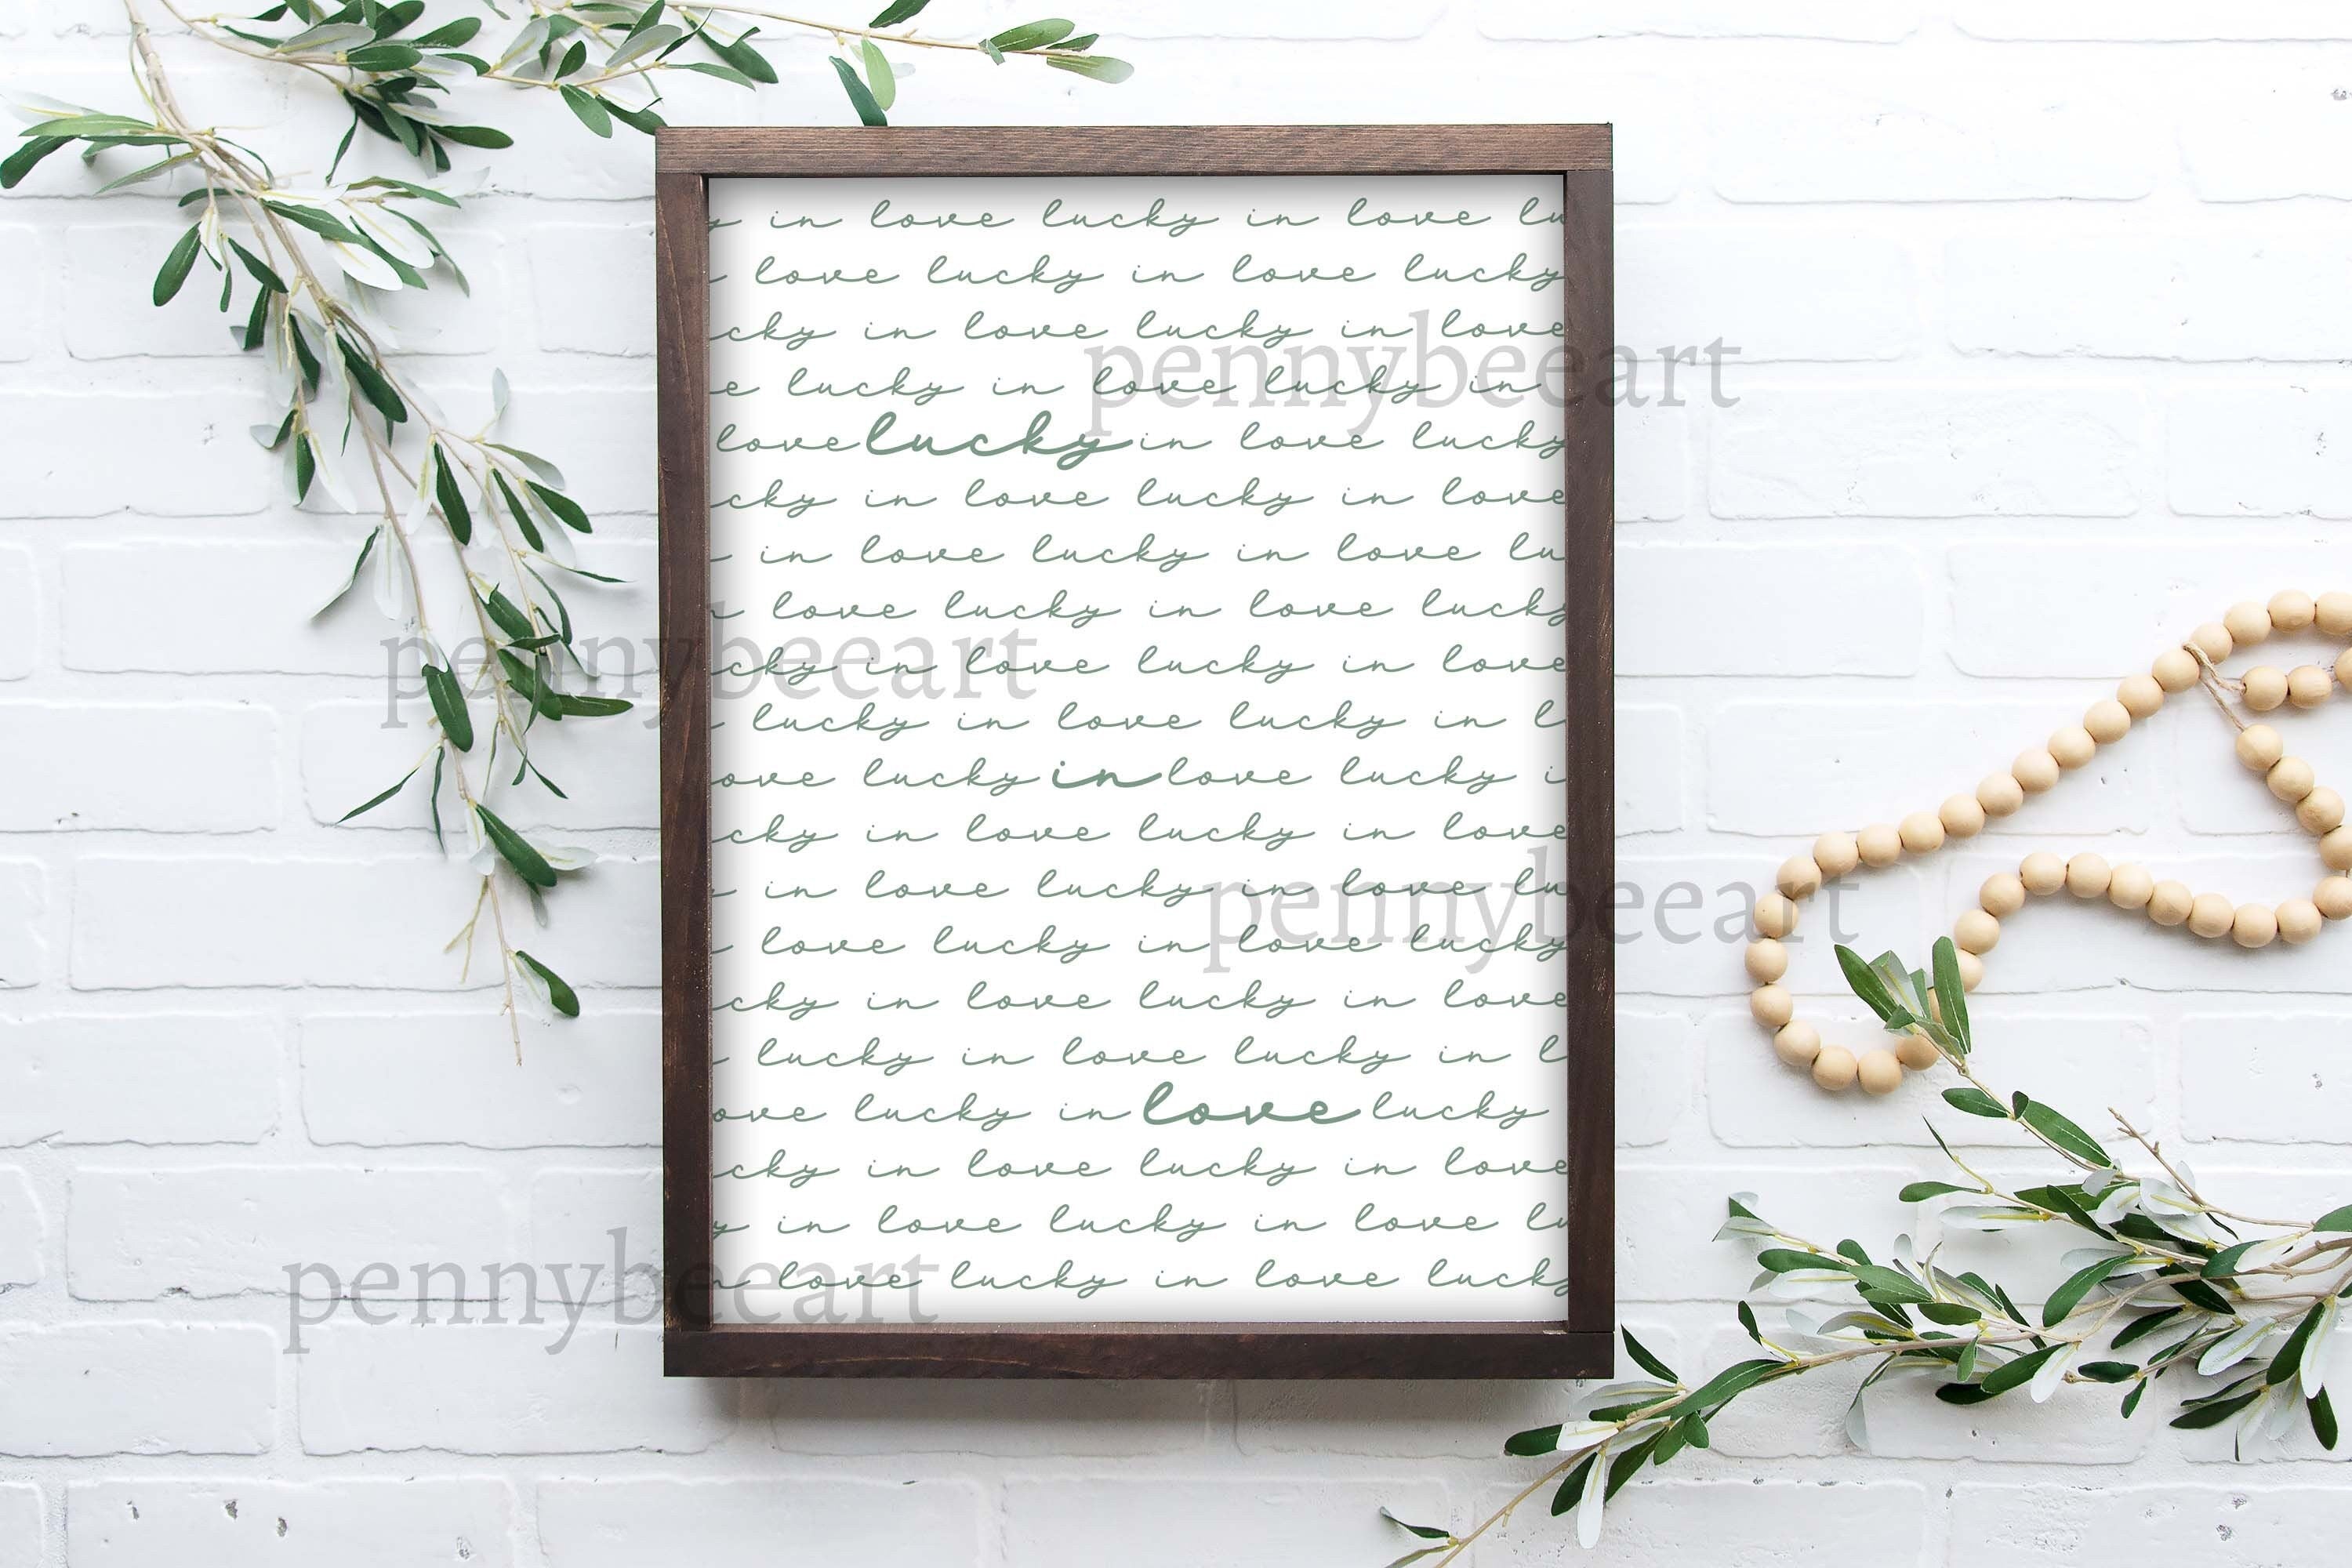 y in love lucky in love lu
love lucky in love lucky
cky in love lucky in love
pennybeeart
e lucky in love lucky in
love lucky in love lucky
cky in love lucky in love
in love lucky in love lu
love lucky in love luck
pennybeeart
cky in love lucky in love
lucky in love lucky in l
ove lucky in love lucky i
cky in love lucky in love
in love lucky in love lu
pennybeeart
love lucky in love lucky
cky in love lucky in love
lucky in love lucky in l
ove lucky in love lucky
cky in love lucky in love
y in love lucky in love lu
n love lucky in love luck
pennybeeart